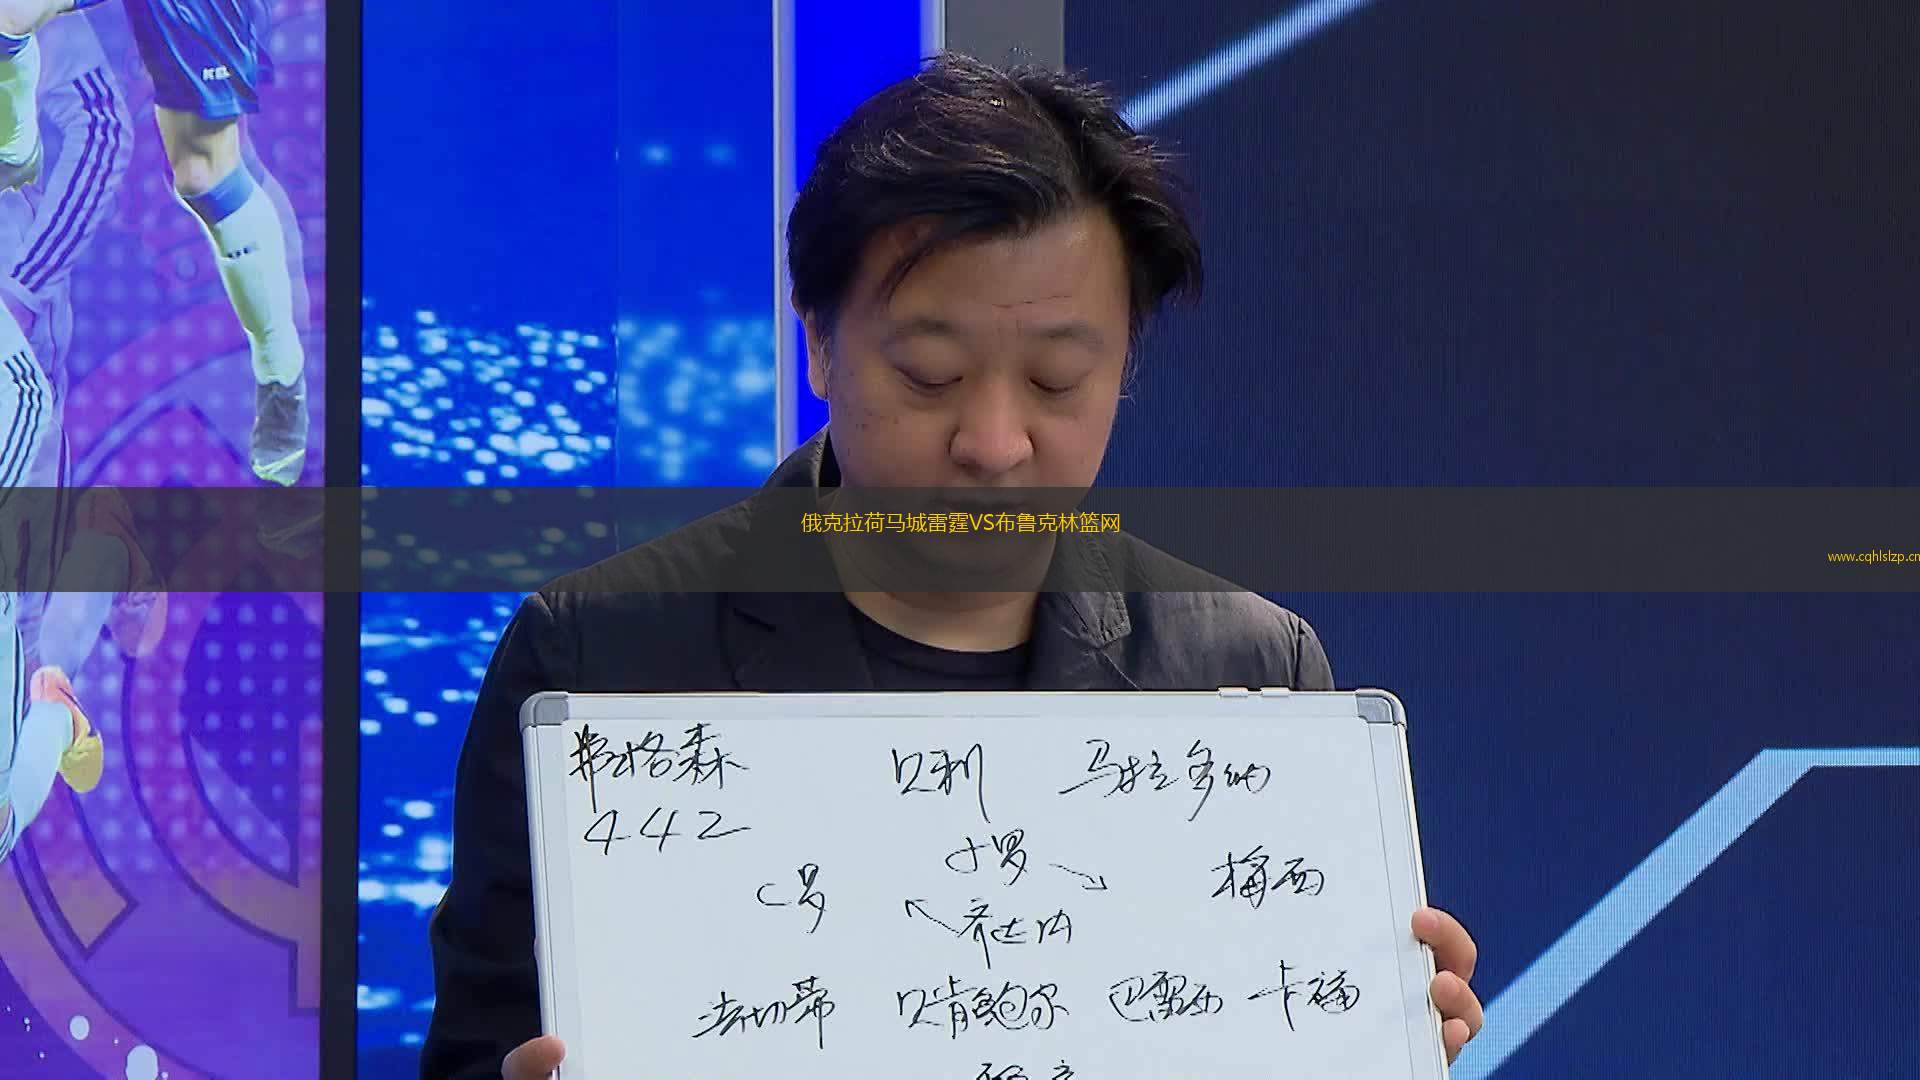 KEL
俄克拉荷马城雷霆VS布鲁克林篮网
www.cqhlslzp.cn
弗格森 贝利 马拉多纳
442
小罗
C罗 梅西
齐达内
法切蒂 贝肯鲍尔 巴雷西 卡福